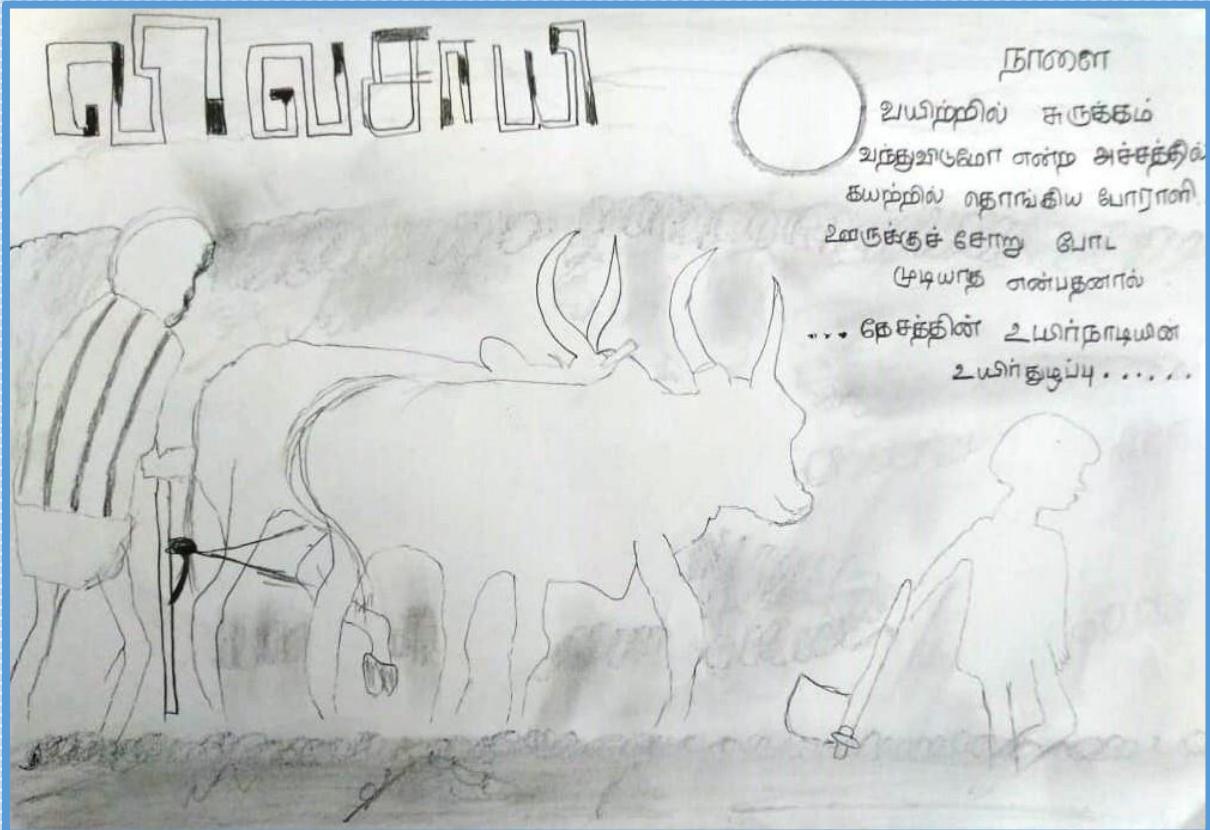 விவசாயி
நாளை
வயிற்றில் சுருக்கம்
வந்துவிடுமோ என்ற அச்சத்தில்
கயற்றில் தொங்கிய போராளி
ஊருக்குச் சோறு போட
முடியாத என்பதனால்
... தேசத்தின் உயிர்நாடியின்
உயிர்துடிப்பு......